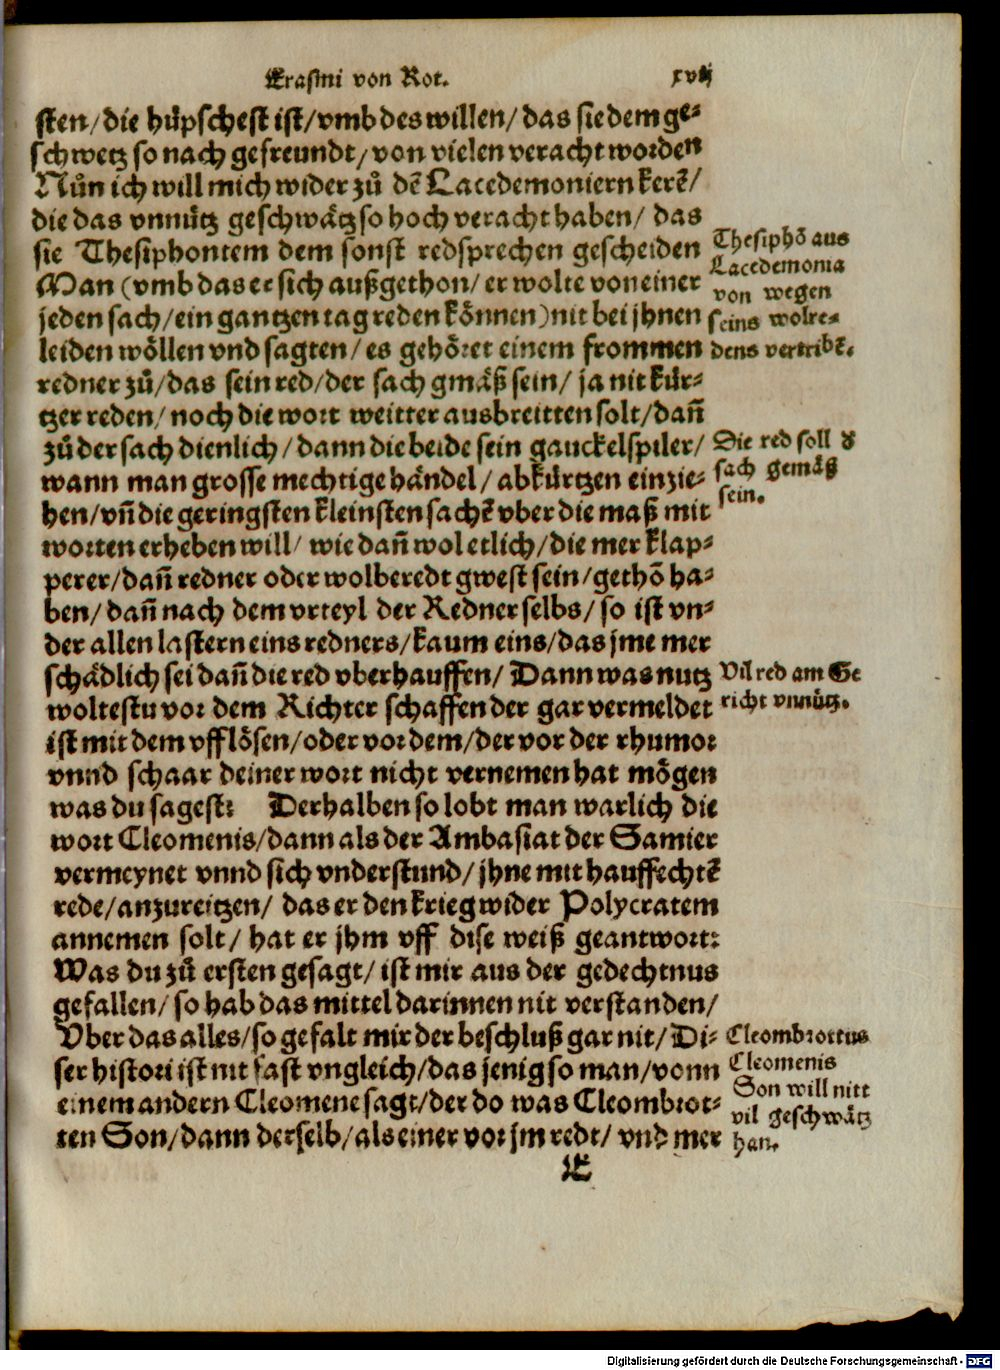 Erasmi von Rot. xvij
sten/die hüpschest ist/vmb des willen/das sie dem ge⸗
schwetz so nach gefreundt/von vielen veracht worden
Nůn ich will mich wider zů dẽ Lacedemoniern kerẽ/
die das vnnütz geschwätz so hoch veracht haben/ das
sie Thesiphontem dem sonst redsprechen gescheiden
Man (vmb das er sich außgethon/er wolte von einer
jeden sach/ein gantzen tag reden können) nit bei jhnen
leiden wöllen vnd sagten/es gehöret einem frommen
redner zů/das sein red/der sach gmäß sein/ ja nit kür⸗
tzer reden/noch die wort weitter ausbreitten solt/dañ
zů der sach dienlich/dann die beide sein gauckelspiler/
wann man grosse mechtige händel/abkürtzen einzie⸗
hen/vñ die geringsten kleinsten sachẽ vber die maß mit
worten erheben will/ wie dañ wol etlich/die mer klap⸗
perer/dañ redner oder wolberedt gwest sein/gethõ ha⸗
ben/dañ nach dem vrteyl der Redner selbs/so ist vn⸗
der allen lastern eins redners/kaum eins/das jme mer
schädlich sei dañ die red vberhauffen/ Dann was nutz
woltestu vor dem Richter schaffen der gar vermeldet
ist mit dem vfflösen/oder vor dem/der vor der rhumor
vnnd schaar deiner wort nicht vernemen hat mögen
was du sagest: Derhalben so lobt man warlich die
wort Cleomenis/dann als der Ambasiat der Samier
vermeynet vnnd sich vnderstund/jhne mit hauffechtẽ
rede/anzureitzen/ das er den krieg wider Polycratem
annemen solt/ hat er jhm vff dise weiß geantwort:
Was du zů ersten gesagt/ist mir aus der gedechtnus
gefallen/so hab das mittel darinnen nit verstanden/
Vber das alles/so gefalt mir der beschluß gar nit/Di⸗
ser histori ist nit fast vngleich/das jenig so man/vonn
einem andern Cleomene sagt/der do was Cleombrot⸗
ten Son/dann derselb/als einer vor jm redt/ vnd mer
E
Thesiphõ aus
Lacedemonia
von wegen
seins wolre⸗
dens vertribẽ.
Die red soll d̕
sach gemäß
sein.
Vil red am Ge
richt vnnütz.
Cleombrottus
Cleomenis
Son will nitt
vil geschwätz
han.
Digitalisierung gefördert durch die Deutsche Forschungsgemeinschaft - DFG